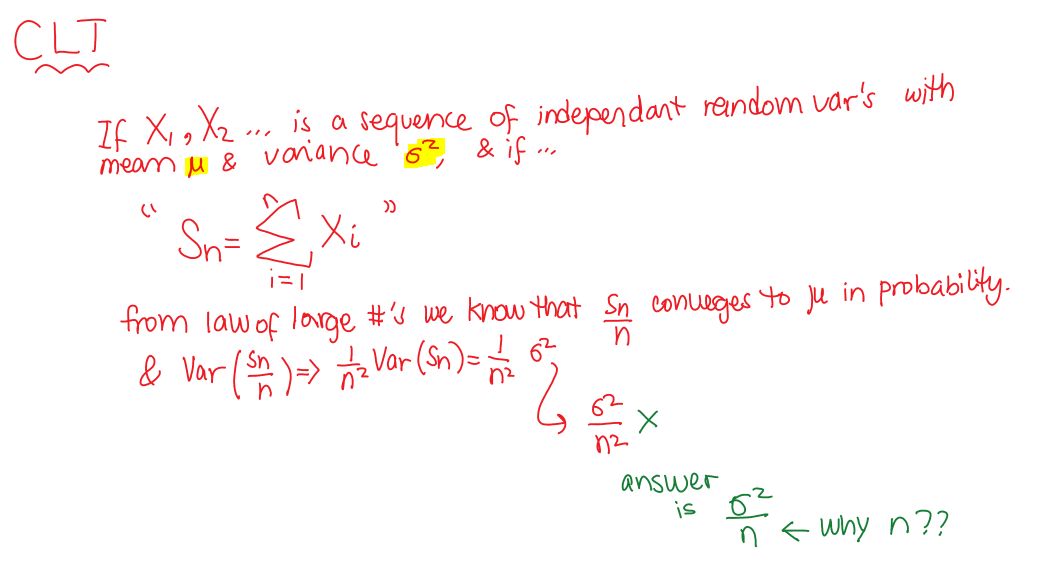 CLT
If X₁, X₂ ... is a sequence of independant random var's with
mean μ & variance σ², & if ...
“ Sn = ∑_{i=1}^{n} Xi ”
from law of large #'s we know that Sn/n conveges to μ in probability.
& Var(Sn/n) ⇒ 1/n² Var(Sn) = 1/n² σ²
σ²/n² ×
answer
is σ²/n ← why n??